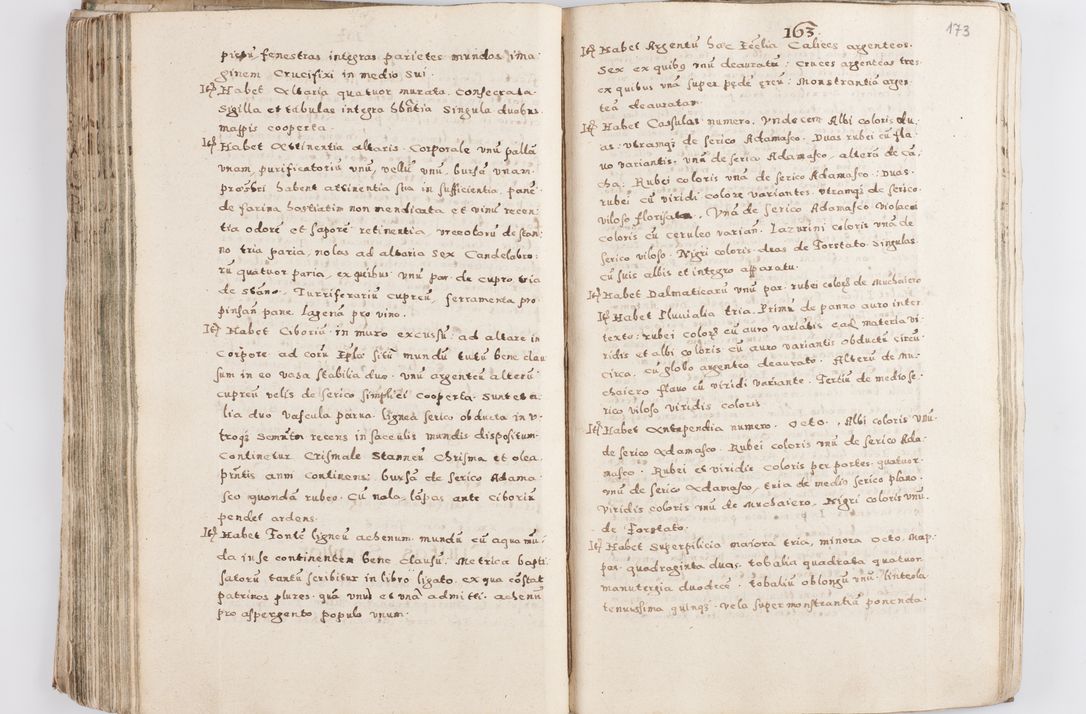 pictū fenestras integras parietes mundos ima:
ginem Crucifixi in medio sui.
Itē Habet Altaria quatuor murata. Consecrata.
Sigilla et tabulas integra hbn̄tia Singula duobus
mappis cooperta.
Itē Habet Attinentia altaris. Corporale unū pallā
unam, purificatoriū unū, vellū unū, bursā unam.
pro sbri habent attinentia sua in sufficientia, pane
de farina hostiatim non mendicata et vinū recen
tia odorē et saporē retinentia, vrceotorū de stan:
no tria paria, nolas ad altaria sex Candelabro:
rū quatuor paria, ex quibus unū par de cupro, tria
de stāno. Turriferariū cupreū, ferramenta pro
pinsan̄ pane. lagena pro vino.
Itē Habet Ciboriū in muro excussū: ad altare in
Corpore ad cornu Eplae sitū mundū tutū bene clau
sum in eo vasa stabilia duo. unū argenteū alterū
cupreū velis de serico simplici cooperta. Sunt et a
lia duo vascula parua lignea serico obducta in v:
troqȝ Scmūtm recens in sacculis mundis dispositum.
Continetur Crismale Stanneū Chrisma et olea
prn̄tis anni continens: bursā de serico Adama:
sco quondā rubeo. Cū nola, lāpas ante Ciboriū
pendet ardens.
Itē Habet Fontē ligneū achenum mundū cū aqua mū:
da in se continentem bene clausū. Metrica bapti:
satorū tantū scribitur in libro ligato. ex qua cōstat
patrinos plures quā unū et unā admitti. achenū
pro aspergento populo unum.
163.
173
Itē Habet Argentū hac Ecclia Calices argenteos.
Sex ex quibȝ unū deauratū: Cruces argenteas tres.
ex quibus una super pede ereū: Monstrantiā argen
teā deauratam.
Itē Habet Casulas numero. Vndecem Albi coloris du:
as: vtramqȝ de serico Adamasco. Duas rubei cū fla
uo variantis. unā de seria Adamasco, alterā de ca:
cha: Rubei coloris unā de serico Adamasco: duas.
rubei cū viridi colore variantes vtramqȝ de serico.
viloso florisata. Vnā de serico Adamasco violacei
coloris cū ceruleo varian̄. Lazurini coloris unā de
serico viloso. Nigri coloris duas de Forstato Singulas
cū suis albis et integro apparatu.
Itē Habet Dalmaticarū unū par rubei colorȝ de Muchaiero
Itē Habet Pluuialia tria. Primū de panno auro inter
texto: rubei colorȝ cū auro variātis eadē materia vi:
ridis et albi coloris cū auro variantis obductū circū
circa. cū globo argenteo deaurato. Alterū de Mu:
chaiero flauo cū viridi variante. Tertiū de medio se:
rico viloso viridis coloris.
Itē Habet Antependia numero. Octo. Albi coloris unū.
de serico Adamasco. Rubei coloris unū de serico Ada:
masco. Rubei et viridis coloris per partes quatuor.
unū de serico Adamasco, tria de medio serico plano.
viridis coloris unū de Muchaiero. Nigri coloris unū.
de Forstato.
Itē Habet Superpilicia maiora tria, minora Octo. Map:
pas quadraginta duas. tobalia quadrata quatuor.
manutergia duodecē. tobaliū oblongū unū. linteola
tenuissima quinqȝ. vela super monstrantiā ponenda.